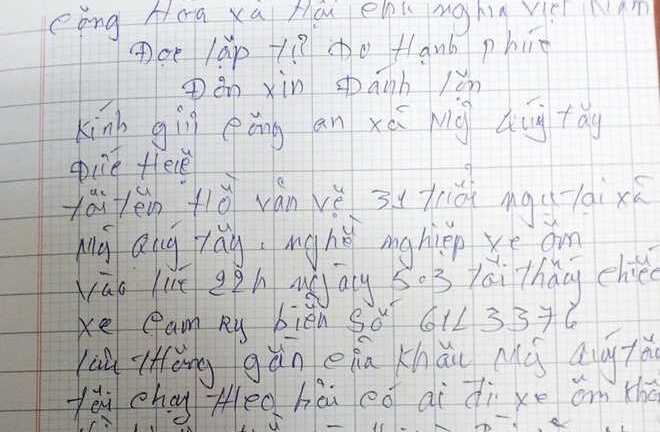 Cộng Hoà xã Hội chủ nghĩa việt Nam
Độc lập tự Do Hạnh phúc
Đơn xin Đánh lộn
Kính gửi công an xã Mỹ quý tây
Đức Huệ
tôi tên Hồ văn vệ 31 tuổi ngụ tại xã
Mỹ quý tây. nghề nghiệp xe ôm
vào lúc 22h ngày 5.3 tôi thấy chiếc
xe Cam Ry biển số 61L 3376
lưu thông gần cửa khẩu Mỹ quý tây
tôi chạy theo hỏi có ai đi xe ôm